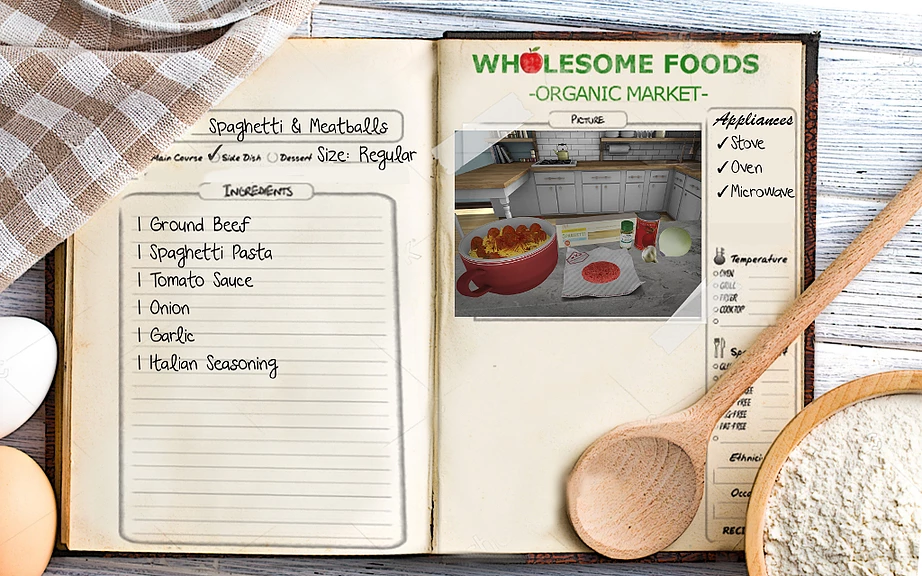 Spaghetti & Meatballs
Main Course ✓ Side Dish Dessert Size: Regular
INGREDIENTS
1 Ground Beef
1 Spaghetti Pasta
1 Tomato Sauce
1 Onion
1 Garlic
1 Italian Seasoning
WHOLESOME FOODS
-ORGANIC MARKET-
PICTURE
Appliances
✓ Stove
✓ Oven
✓ Microwave
Temperature
OVEN
GRILL
FRYER
COOKTOP
FAT-FREE